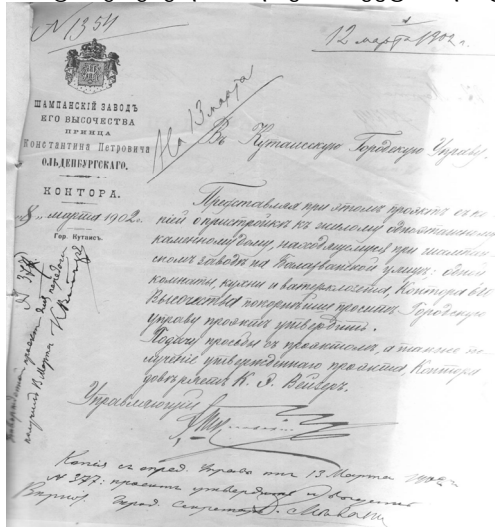 N 1354
12 марта 1902 г.
ШАМПАНСКІЙ ЗАВОДЪ
ЕГО ВЫСОЧЕСТВА
ПРИНЦА
Константина Петровича
ОЛЬДЕНБУРГСКАГО.
КОНТОРА.
„8„ марта 1902 г.
Гор. Кутаисъ.
На 13 марта
Въ Кутаисскую Городскую Управу.
Представляя при этомъ проэктъ съ ко-
піей о пристройкѣ къ жилому одноэтажному
каменному дому, находящемуся при шампан-
скомъ заводѣ на улицѣ: одной
комнаты, кухни и ватерклозета, Контора Его
Высочества покорнѣйше проситъ Городскую
управу проэктъ утвердить.
Подачу просьбы съ проэктомъ, а также по-
лученіе утвержденнаго проэкта, Контора
довѣряетъ К. Я. Вейгеръ.
Управляющій
N 377
получилъ 13 Марта
Копія съ опред. Управы отъ 13 Марта 1902 г.
N 377: проэктъ утвердить и
Вѣрно: Город. Секретарь: